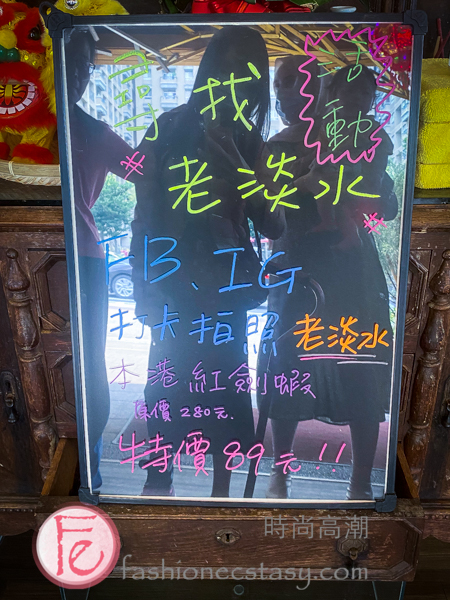 尋找
活動
#老淡水#
FB、IG
打卡拍照 老淡水
本港紅劍蝦
原價280元.
特價89元!!
Fe
時尚高潮
fashionecstasy.com